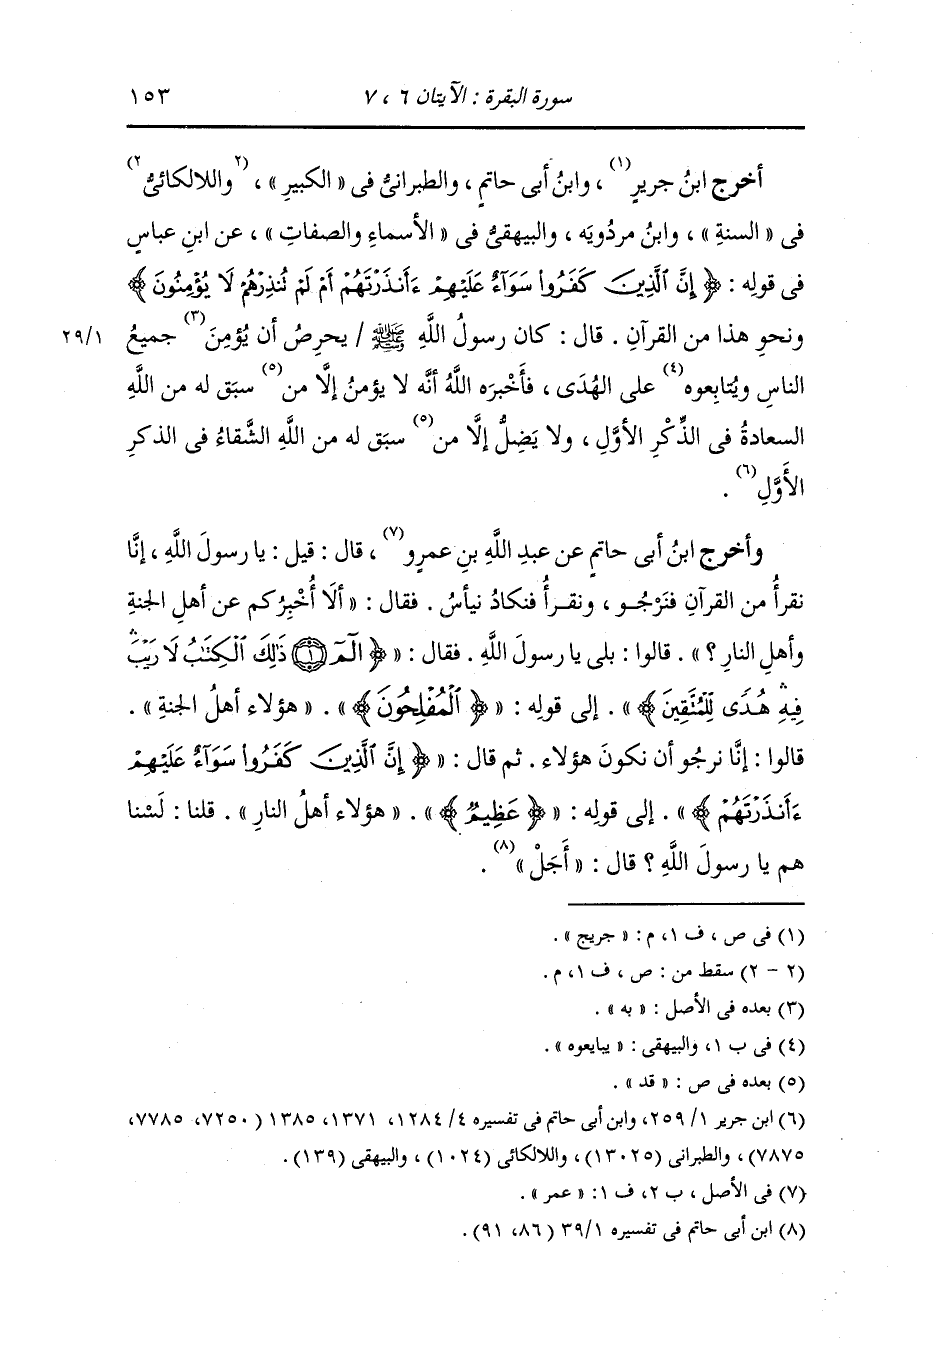 سورة البقرة : الآيتان ٦ ، ٧ ١٥٣
أخرج ابنُ جريرٍ(١) ، وابنُ أبى حاتمٍ ، والطبرانىُّ فى « الكبيرِ » ، (٢واللالكائىُّ٢)
فى « السنةِ » ، وابنُ مردُويَه ، والبيهقىُّ فى « الأسماءِ والصفاتِ » ، عن ابنِ عباسٍ
فى قولِه : ﴿ إِنَّ ٱلَّذِينَ كَفَرُوا۟ سَوَآءٌ عَلَيْهِمْ ءَأَنذَرْتَهُمْ أَمْ لَمْ تُنذِرْهُمْ لَا يُؤْمِنُونَ ﴾
ونحوِ هذا من القرآنِ . قال : كان رسولُ اللَّهِ ﷺ / يحرِصُ أن يُؤمِنَ(٣) جميعُ ٢٩/١
الناسِ ويُتابِعوه(٤) على الهُدَى ، فأَخْبَره اللَّهُ أنَّه لا يؤمنُ إلَّا من(٥) سبَق له من اللَّهِ
السعادةُ فى الذِّكْرِ الأوَّلِ ، ولا يَضِلُّ إلَّا من(٥) سبَق له من اللَّهِ الشَّقاءُ فى الذكرِ
الأَوَّلِ(٦) .
وأخرج ابنُ أبى حاتمٍ عن عبدِ اللَّهِ بنِ عمرٍو(٧) ، قال : قيل : يا رسولَ اللَّهِ ، إنَّا
نقرأُ من القرآنِ فنَرْجُـو ، ونقـرأُ فنكادُ نيأسُ . فقال : « ألَا أُخْبِرُكم عن أهلِ الجنةِ
وأهلِ النارِ ؟ » . قالوا : بلى يا رسولَ اللَّهِ . فقال : « ﴿ الٓمٓ ۝١ ذَٰلِكَ ٱلْكِتَٰبُ لَا رَيْبَۛ
فِيهِۛ هُدًى لِّلْمُتَّقِينَ ﴾ » . إلى قولِه : « ﴿ ٱلْمُفْلِحُونَ ﴾ » . « هؤلاء أهلُ الجنةِ » .
قالوا : إنَّا نرجُو أن نكونَ هؤلاء . ثم قال : « ﴿ إِنَّ ٱلَّذِينَ كَفَرُوا۟ سَوَآءٌ عَلَيْهِمْ
ءَأَنذَرْتَهُمْ ﴾ » . إلى قولِه : « ﴿ عَظِيمٌ ﴾ » . « هؤلاء أهلُ النارِ » . قلنا : لَسْنا
هم يا رسولَ اللَّهِ ؟ قال : « أَجَلْ »(٨) .
(١) فى ص ، ف ١، م : « جريج » .
(٢ - ٢) سقط من : ص ، ف ١، م .
(٣) بعده فى الأصل : « به » .
(٤) فى ب ١، والبيهقى : « يبايعوه » .
(٥) بعده فى ص : « قد » .
(٦) ابن جرير ١/ ٢٥٩، وابن أبى حاتم فى تفسيره ٤/ ١٢٨٤، ١٣٧١، ١٣٨٥ ( ٧٢٥٠، ٧٧٨٥،
٧٨٧٥) ، والطبرانى (١٣٠٢٥) ، واللالكائى (١٠٢٤) ، والبيهقى (١٣٩) .
(٧) فى الأصل ، ب ٢، ف ١: « عمر » .
(٨) ابن أبى حاتم فى تفسيره ٣٩/١ ( ٨٦، ٩١) .